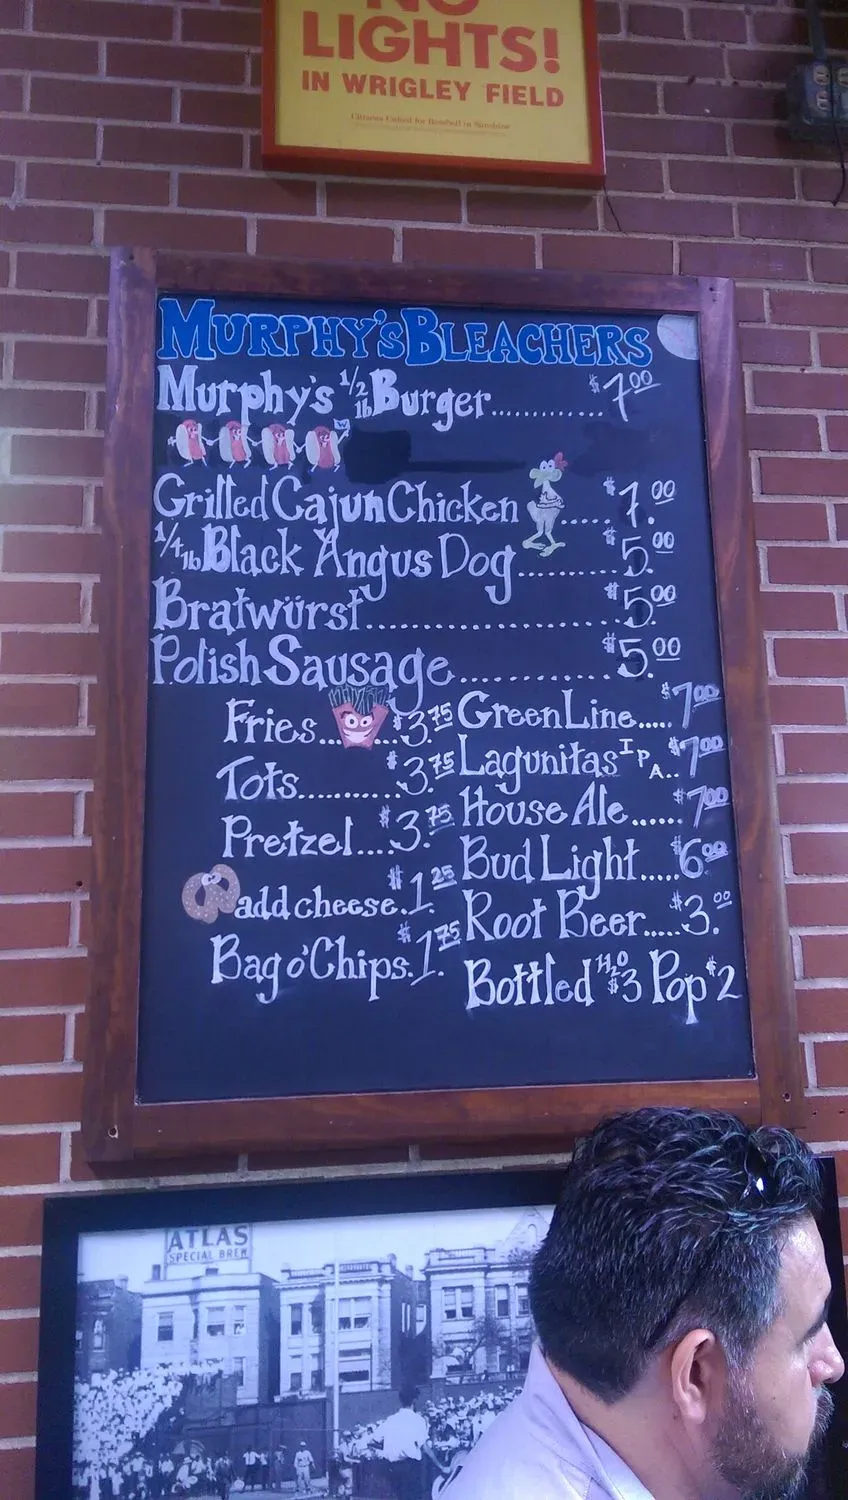 NO
LIGHTS!
IN WRIGLEY FIELD
Citizens United for Baseball in Sunshine
MURPHY'S BLEACHERS
Murphy's 1/2 lb Burger............ $7.00
W
Grilled Cajun Chicken..... $7.00
1/4 lb Black Angus Dog.......... $5.00
Bratwürst..................... $5.00
Polish Sausage............ $5.00
Fries...... $3.75
Tots.......... $3.75
Pretzel.... $3.75
add cheese. $1.25
Bag o' Chips. $1.75
Green Line..... $7.00
Lagunitas IPA.. $7.00
House Ale...... $7.00
Bud Light.... $6.00
Root Beer..... $3.00
Bottled H2O $3 Pop $2
ATLAS
SPECIAL BREW